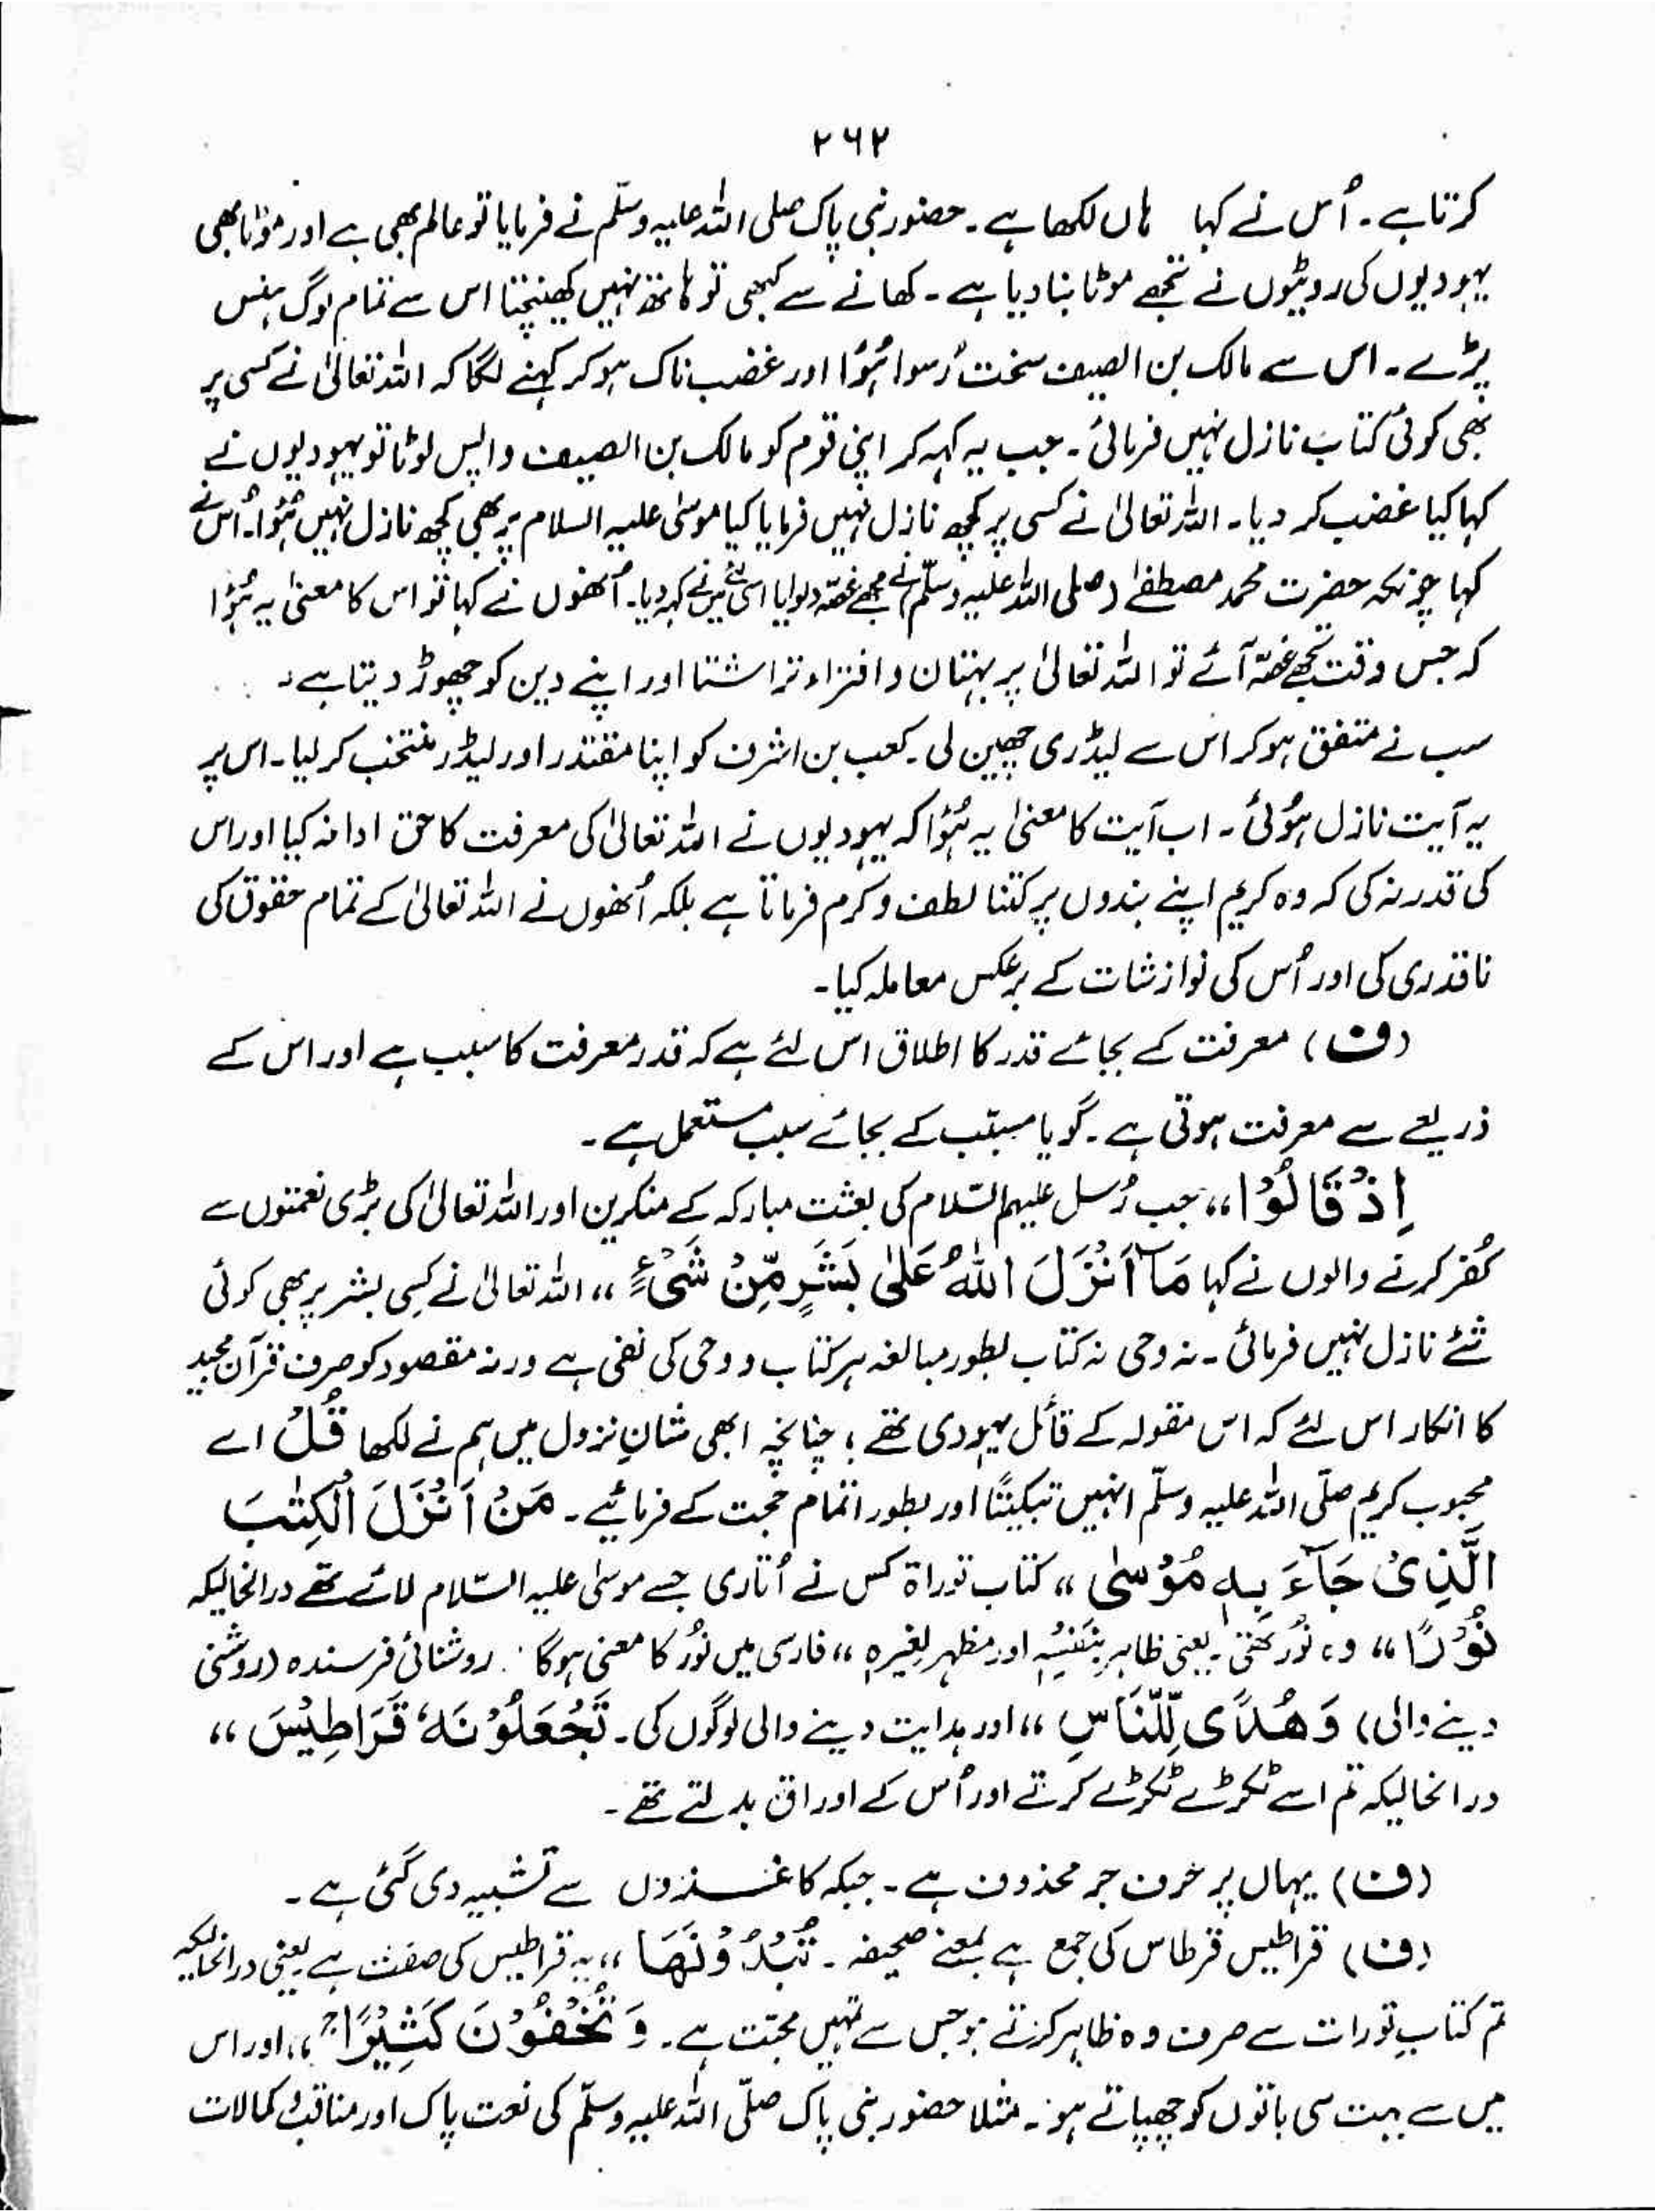 ۲۶۲
کرتا ہے۔ اُس نے کہا ہاں لکھا ہے۔ حضور نبی پاک صلی اللہ علیہ وسلّم نے فرمایا تو عالم بھی ہے اور موٹا بھی
یہودیوں کی روٹیوں نے تجھے موٹا بنا دیا ہے۔ کھانے سے کبھی تو ہاتھ نہیں کھینچتا اس سے تمام لوگ ہنس
پڑے۔ اس سے مالک بن الصیف سخت رُسوا ہُوا اور غضب ناک ہو کر کہنے لگا کہ اللہ تعالیٰ نے کسی پر
بھی کوئی کتاب نازل نہیں فرمائی۔ جب یہ کہہ کر اپنی قوم کو مالک بن الصیف واپس لوٹا تو یہودیوں نے
کہا کیا غضب کر دیا۔ اللہ تعالیٰ نے کسی پر کچھ نازل نہیں فرمایا کیا موسیٰ علیہ السلام پر بھی کچھ نازل نہیں ہُوا۔ اُس نے
کہا چونکہ حضرت محمد مصطفےٰ (صلی اللہ علیہ وسلّم) نے مجھے غصّہ دلوایا اسی لئے میں نے کہہ دیا۔ اُنھوں نے کہا تو اس کا معنیٰ یہ ہُوا
کہ جس وقت تجھے غصّہ آئے تو اللہ تعالیٰ پر بہتان و افتراء تراشتا اور اپنے دین کو چھوڑ دیتا ہے۔
سب نے متفق ہو کر اس سے لیڈری چھین لی۔ کعب بن اشرف کو اپنا مقتدر اور لیڈر منتخب کر لیا۔ اس پر
یہ آیت نازل ہُوئی۔ اب آیت کا معنیٰ یہ ہُوا کہ یہودیوں نے اللہ تعالیٰ کی معرفت کا حق ادا نہ کیا اور اس
کی قدر نہ کی کہ وہ کریم اپنے بندوں پر کتنا لطف و کرم فرماتا ہے بلکہ اُنھوں نے اللہ تعالیٰ کے تمام حقوق کی
ناقدری کی اور اُس کی نوازشات کے برعکس معاملہ کیا۔
(ف) معرفت کے بجائے قدر کا اطلاق اس لئے ہے کہ قدر معرفت کا سبب ہے اور اس کے
ذریعے سے معرفت ہوتی ہے۔ گویا مسبّب کے بجائے سبب مستعمل ہے۔
اِذْ قَالُوْا،، جب رُسل علیہم السّلام کی بعثت مبارکہ کے منکرین اور اللہ تعالیٰ کی بڑی نعمتوں سے
کُفر کرنے والوں نے کہا مَآ اَنْزَلَ اللّٰهُ عَلٰى بَشَرٍ مِّنْ شَيْءٍ،، اللہ تعالیٰ نے کسی بشر پر بھی کوئی
شئے نازل نہیں فرمائی۔ نہ وحی نہ کتاب بطور مبالغہ ہر کتاب و وحی کی نفی ہے ورنہ مقصود کو صرف قرآن مجید
کا انکار اس لئے کہ اس مقولہ کے قائل یہودی تھے؛ چنانچہ ابھی شانِ نزول میں ہم نے لکھا قُلْ اے
محبوب کریم صلّی اللہ علیہ وسلّم انہیں تبکیتًا اور بطور اتمام حجت کے فرمائیے۔ مَنْ اَنْزَلَ الْكِتٰبَ
الَّذِیْ جَآءَ بِہٖ مُوْسٰی،، کتاب توراۃ کس نے اُتاری جسے موسیٰ علیہ السّلام لائے تھے درانحالیکہ
نُوْرًا،، وہ نُور تھی۔ یعنی ظاہر بنفسہٖ اور مظہر لغیرہٖ،، فارسی میں نُور کا معنی ہوگا۔ روشنائی فرسندہ (روشنی
دینے والی) وَ هُدًى لِّلنَّاسِ،، اور ہدایت دینے والی لوگوں کی۔ تَجْعَلُوْنَهٗ قَرَاطِيْسَ،،
درانحالیکہ تم اسے ٹکڑے ٹکڑے کرتے اور اُس کے اوراق بدلتے تھے۔
(ف) یہاں پر حرف جر محذوف ہے۔ جبکہ کاغذوں سے تشبیہ دی گئی ہے۔
(ف) قراطیس قرطاس کی جمع ہے بمعنے صحیفہ۔ تُبْدُوْنَهَا،، یہ قراطیس کی صفت ہے یعنی درانحالیکہ
تم کتابِ تورات سے صرف وہ ظاہر کرتے ہو جس سے تمہیں محبّت ہے۔ وَ تُخْفُوْنَ كَثِيْرًا ۚ،، اور اس
میں سے بہت سی باتوں کو چھپاتے ہو۔ مثلا حضور نبی پاک صلّی اللہ علیہ وسلّم کی نعت پاک اور مناقب کمالات